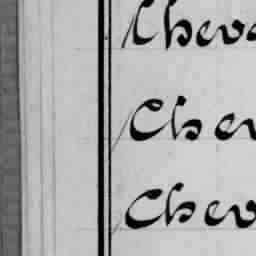 Cheva
Chev
Chev